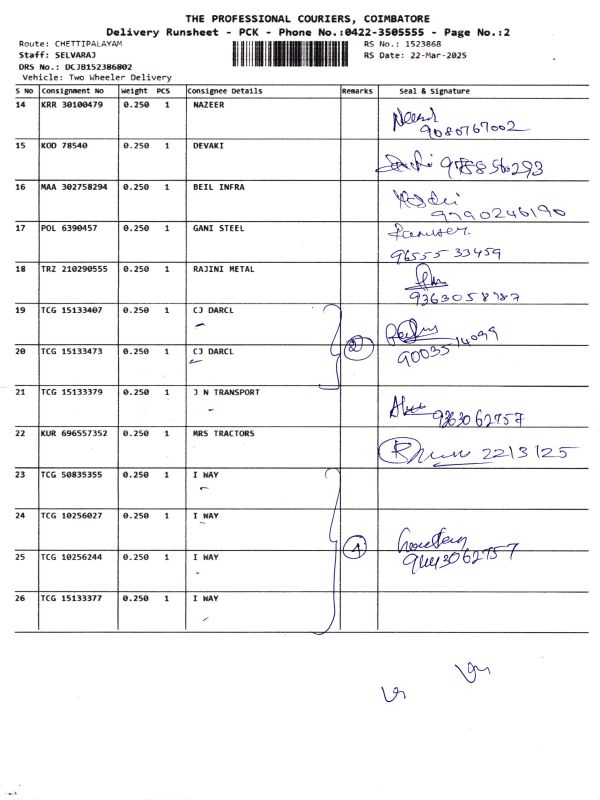 THE PROFESSIONAL COURIERS, COIMBATORE
Delivery Runsheet - PCK - Phone No.:0422-3505555 - Page No.:2
Route: CHETTIPALAYAM RS No.: 1523868
Staff: SELVARAJ RS Date: 22-Mar-2025
DRS No.: DCJB152386802
Vehicle: Two Wheeler Delivery
S No Consignment No Weight PCS Consignee Details Remarks Seal & Signature
14 KRR 30100479 0.250 1 NAZEER
9080767002
15 KOD 78540 0.250 1 DEVAKI
16 MAA 302758294 0.250 1 BEIL INFRA
9790246190
17 POL 6390457 0.250 1 GANI STEEL
96555 33459
18 TRZ 210290555 0.250 1 RAJINI METAL
19 TCG 15133407 0.250 1 CJ DARCL
2
20 TCG 15133473 0.250 1 CJ DARCL
90035 14099
21 TCG 15133379 0.250 1 J N TRANSPORT
9363062757
22 KUR 696557352 0.250 1 MRS TRACTORS
22/3/25
23 TCG 50835355 0.250 1 I WAY
24 TCG 10256027 0.250 1 I WAY
4
25 TCG 10256244 0.250 1 I WAY
26 TCG 15133377 0.250 1 I WAY